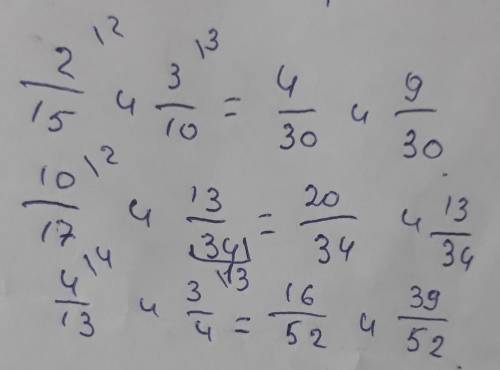 2/15 \2 и 3/10 \3 = 4/30 и 9/30.
10/17 \2 и 13/34 = 20/34 и 13/34
4/13 \4 и 3/4 \13 = 16/52 и 39/52.